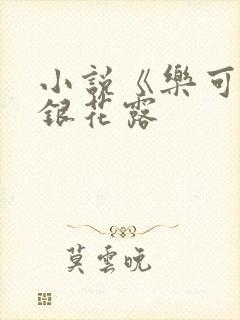 小説《樂可
銀花露
莫雲晚